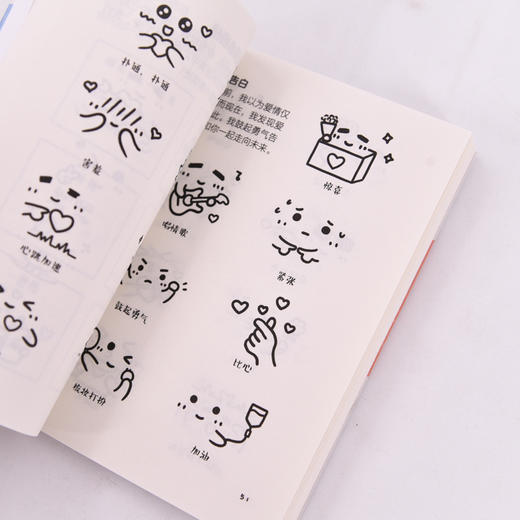 扑通，扑通
害羞
心跳加速
告白
前，我以为爱情仅
而现在，我发现爱
此，我鼓起勇气告
和你一起走向未来。
惊喜
唱情歌
紧张
鼓起勇气
比心
梳妆打扮
加油
51